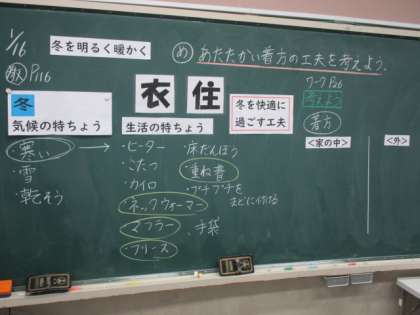 1/16
冬を明るく暖かく
め あたたかい着方の工夫を考えよう。
教 P116
衣 住
ワークP26
考えよう
着方
冬
気候の特ちょう
生活の特ちょう
冬を快適に
過ごす工夫
<家の中>
<外>
寒い →
・雪
・乾そう
・ヒーター
・こたつ
・カイロ
・ネックウォーマー
・マフラー
・フリース
・床だんぼう
・重ね着
・プチプチを
まどに付ける
・手袋